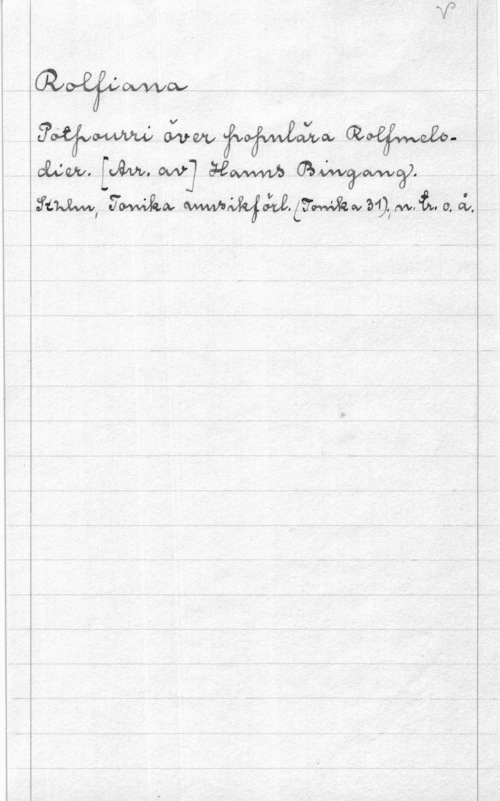 V
Rolfiana
Potpourri över populära Rolfmelo-
dier. [Arr. av] Hanns Bingang.
Sthlm, Tonika musikförl. (Tonika 31), n. tr. o. å.